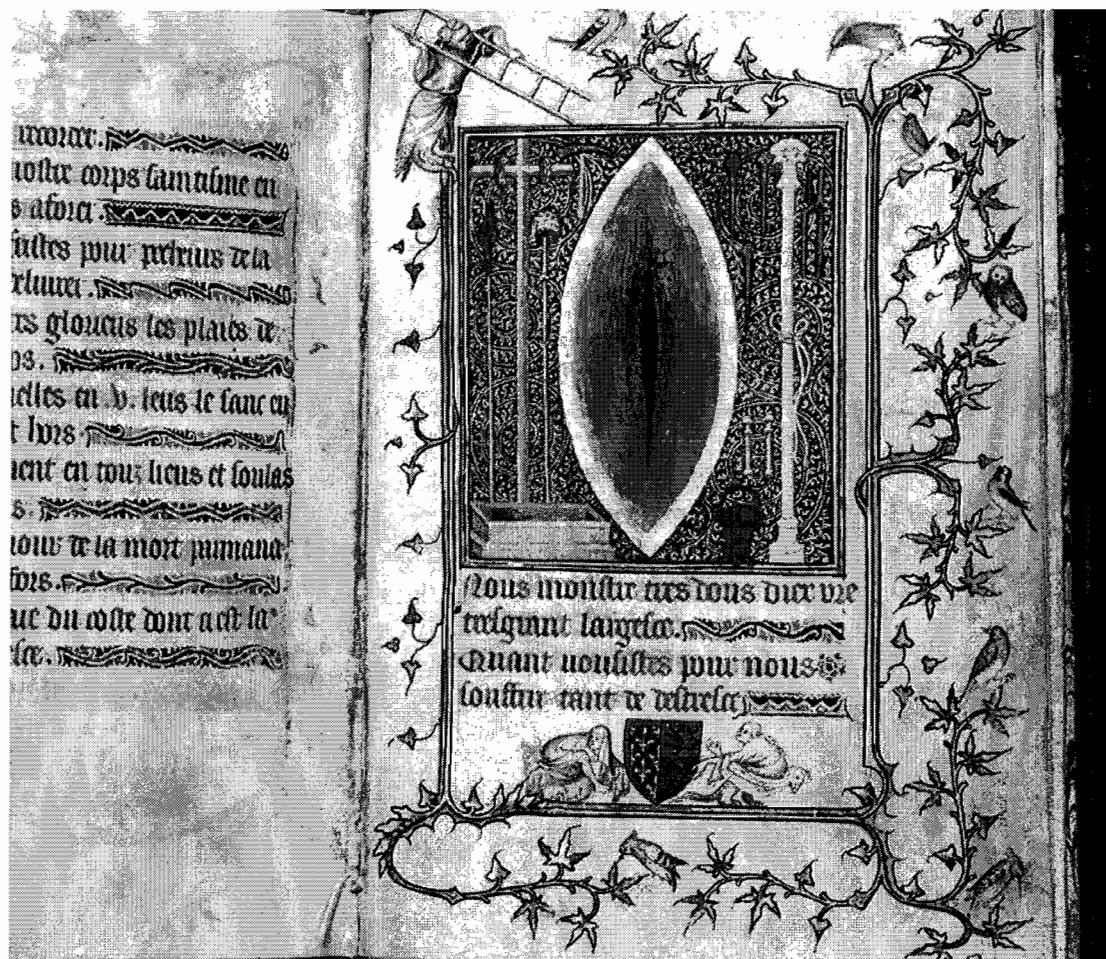 nostre corps saintisme en
s aforer.
faistes pour pecheurs de la
rs glorieus les plaies de
os.
elles en .v. leus le sanc en
t hors
ment en touz lieus et soulas
s.
de la mort
fors.
du coste dont a est la
Nous monstre tres dous diex vre
tresgrant largesce.
Quant vousistes pour nous
souffrir tant de destresce